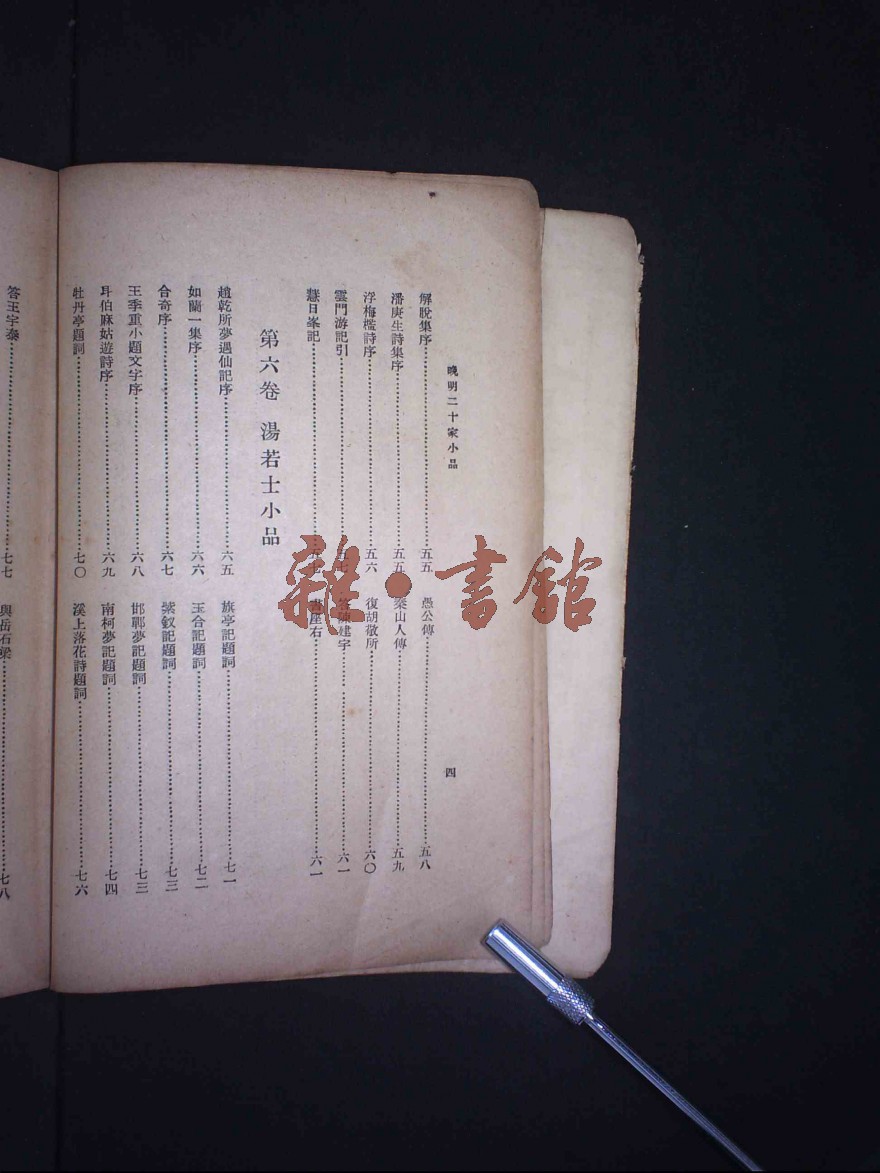 晚明二十家小品 四
解脫集序……五五 愚公傳……五八
潘庚生詩集序……五五 秦山人傳……五九
浮梅檻詩序……五六 復胡敬所……六〇
雲門游記引……五七 答陳建字……六一
慧日峯記……五七 書座右……六一
第六卷 湯若士小品
趙乾所夢遇仙記序……六五 旗亭記題詞……七一
如蘭一集序……六六 玉合記題詞……七二
合奇序……六七 紫釵記題詞……七三
王季重小題文字序……六八 邯鄲夢記題詞……七三
耳伯麻姑遊詩序……六九 南柯夢記題詞……七四
牡丹亭題詞……七〇 溪上落花詩題詞……七六
答王宇泰……七七 與岳石梁……七八
雜·書館